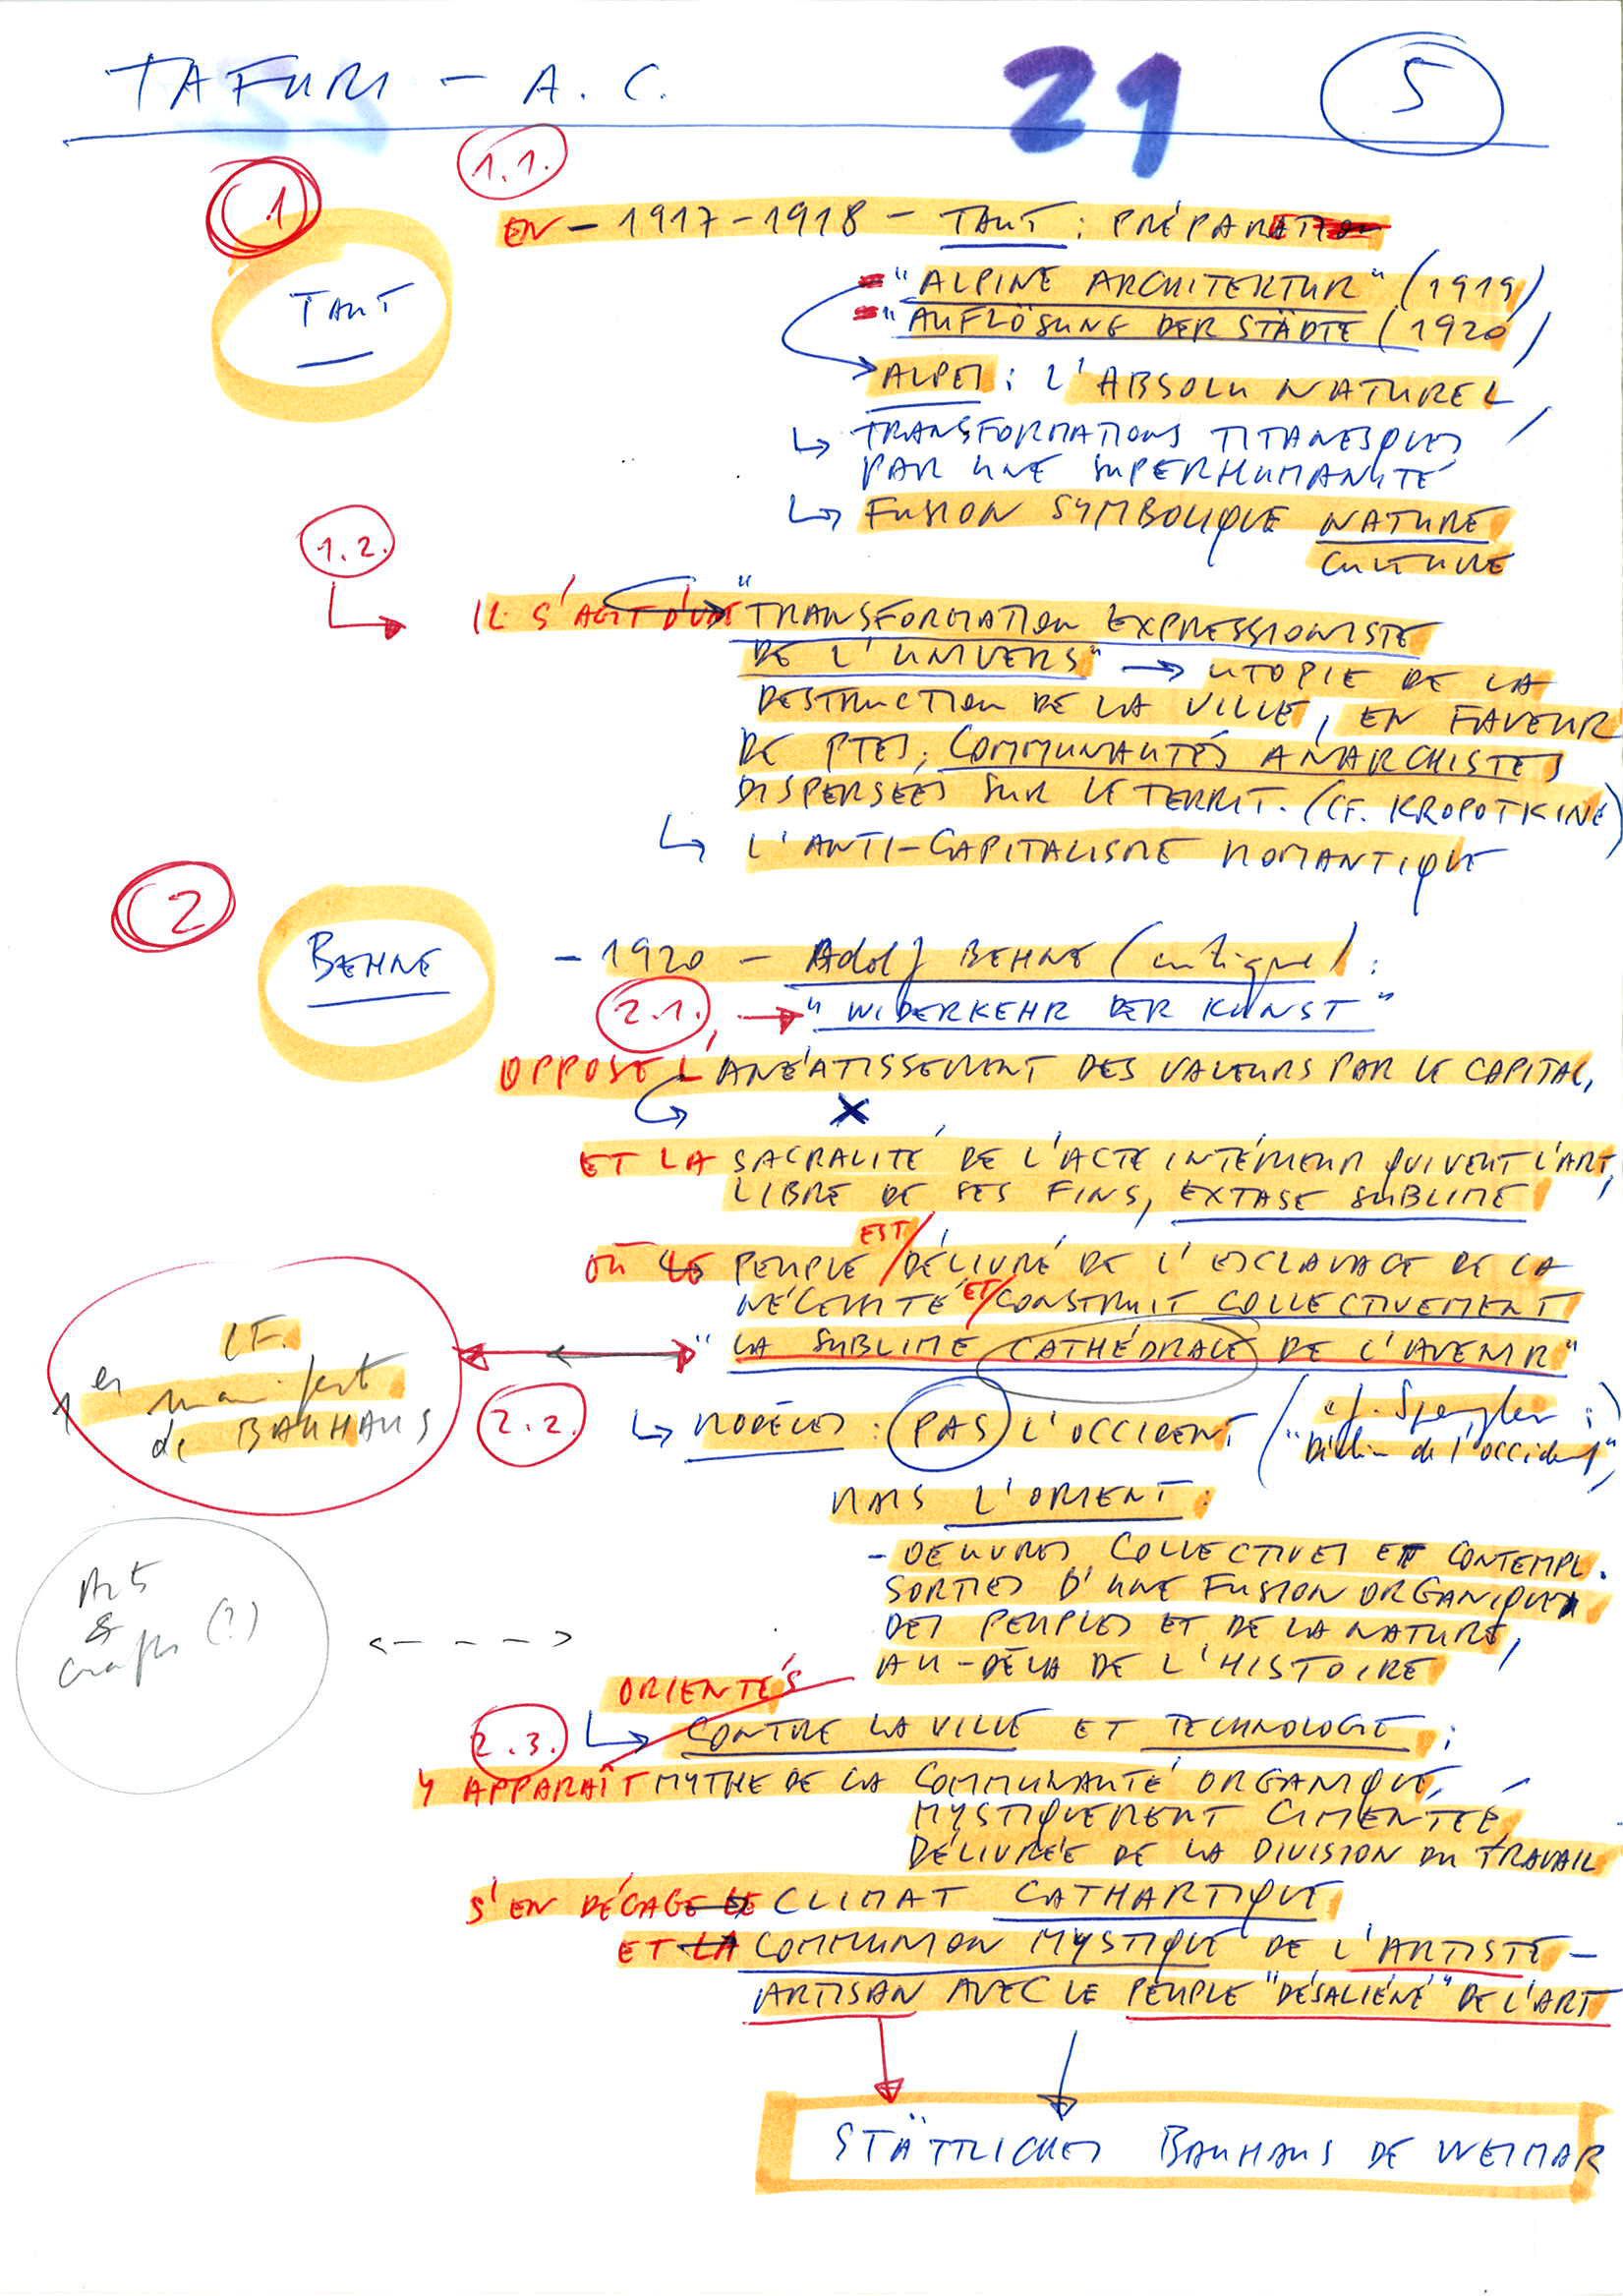 TAFURI - A.C.
21
5
1
1.1.
TAUT
EN - 1917-1918 - TAUT : PRÉPARE
"ALPINE ARCHITEKTUR" (1919)
"AUFLÖSUNG DER STÄDTE (1920)
ALPES : L'ABSOLU NATUREL
TRANSFORMATIONS TITANESQUES
PAR UNE SUPERHUMANITÉ
FUSION SYMBOLIQUE NATURE
CULTURE
1.2.
IL S'AGIT D'UNE "TRANSFORMATION EXPRESSIONISTE
DE L'UNIVERS" → UTOPIE DE LA
DESTRUCTION DE LA VILLE, EN FAVEUR
DE PTES, COMMUNAUTÉS ANARCHISTES
DISPERSÉES SUR LE TERRIT. (CF. KROPOTKINE)
L'ANTI-CAPITALISME ROMANTIQUE
2
BEHNE
- 1920 - Adolf BEHNE (critique) :
2.1. → "WIDERKEHR DER KUNST"
OPPOSE L'ANÉATISSEMENT DES VALEURS PAR LE CAPITAL,
ET LA SACRALITÉ DE L'ACTE INTÉRIEUR QUI VEUT L'ART,
LIBRE DE SES FINS, EXTASE SUBLIME
OÙ LE PEUPLE EST DÉLIVRÉ DE L'ESCLAVAGE DE LA
NÉCESSITÉ ET CONSTRUIT COLLECTIVEMENT
"LA SUBLIME CATHÉDRALE DE L'AVENIR"
CF.
1er manifest
de BAUHAUS
2.2.
MODÈLES : PAS L'OCCIDENT (cf. Spengler :
"Déclin de l'occident")
MAIS L'ORIENT :
- OEUVRES COLLECTIVES ET CONTEMPL.
SORTIES D'UNE FUSION ORGANIQUE
DES PEUPLES ET DE LA NATURE,
AU-DELÀ DE L'HISTOIRE
Arts
&
crafts (?)
ORIENTÉS
2.3.
CONTRE LA VILLE ET TECHNOLOGIE :
Y APPARAÎT MYTHE DE LA COMMUNAUTÉ ORGANIQUE,
MYSTIQUEMENT CIMENTÉE,
DÉLIVRÉE DE LA DIVISION DU TRAVAIL
S'EN DÉGAGE CLIMAT CATHARTIQUE
ET LA COMMUNION MYSTIQUE DE L'ARTISTE-
ARTISAN AVEC LE PEUPLE "DÉSALIÉNÉ" DE L'ART
STÄTTLICHES BAUHAUS DE WEIMAR